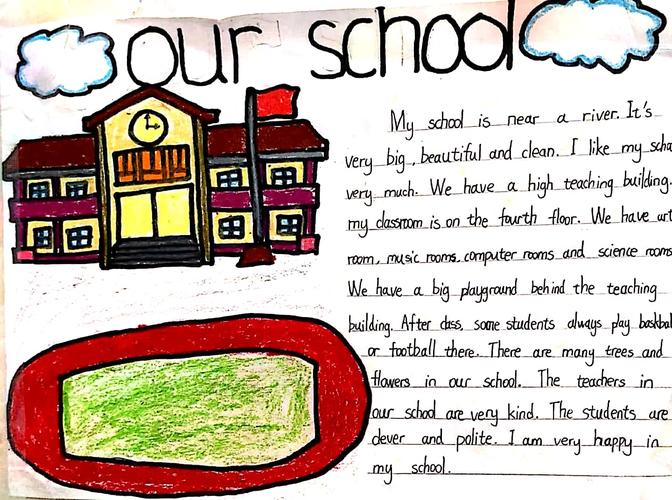 our school
My school is near a river. It's
very big, beautiful and clean. I like my scho
very much. We have a high teaching building.
my classroom is on the fourth floor. We have art
room, music rooms, computer rooms and science rooms
We have a big playground behind the teaching
building. After class, some students always play basketbal
or football there. There are many trees and
flowers in our school. The teachers in
our school are very kind. The students are
clever and polite. I am very happy in
my school.